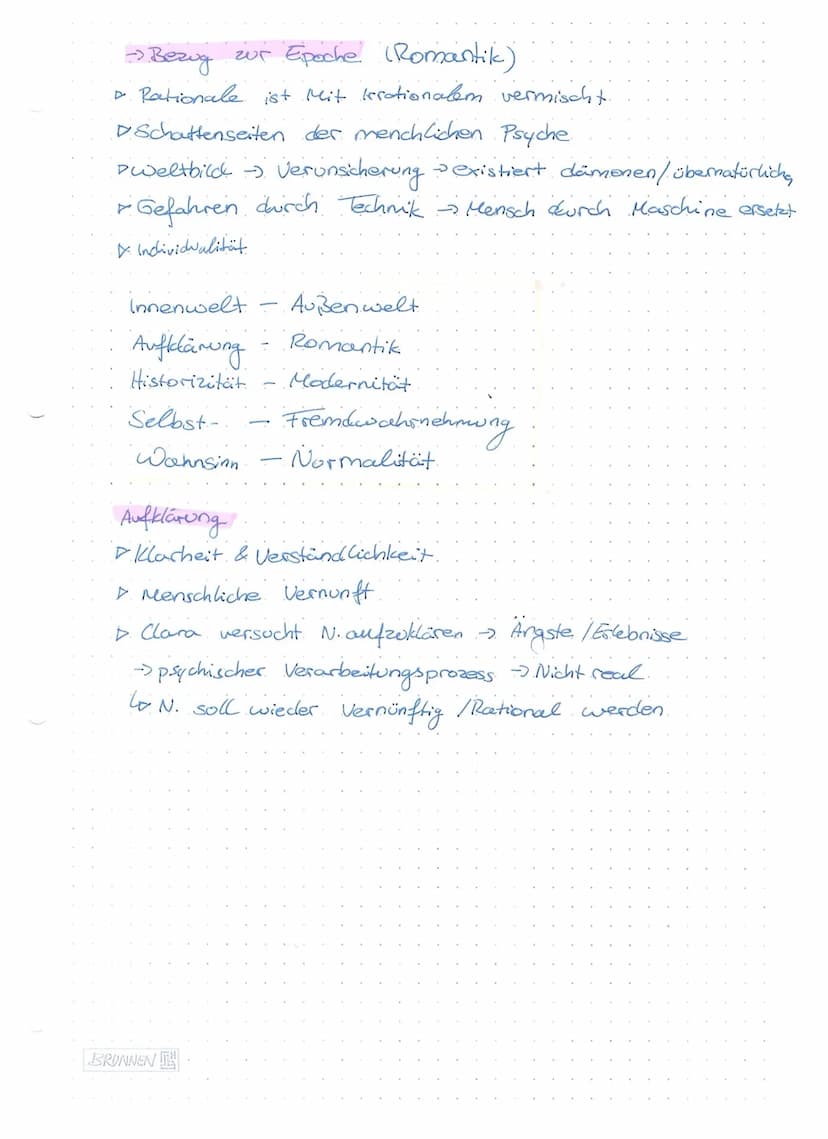 → Bezug zur Epoche (Romantik)
▷ Rationale ist mit Irrationalem vermischt
▷ Schattenseiten der menchlichen Psyche
▷ Weltbild → Verunsicherung → existiert dämonen/übernatürlich
▷ Gefahren durch Technik → Mensch durch Maschine ersetzt
▷ Individualität
Innenwelt – Außenwelt
Aufklärung - Romantik
Historizität - Modernität
Selbst- – Fremdwahrnehmung
Wahnsinn – Normalität
Aufklärung
▷ Klarheit & Verständlichkeit
▷ Menschliche Vernunft
▷ Clara versucht N. aufzuklären → Ängste / Erlebnisse
→ psychischer Verarbeitungsprozess → Nicht real
↳ N. soll wieder Vernünftig / Rational werden
BRUNNEN